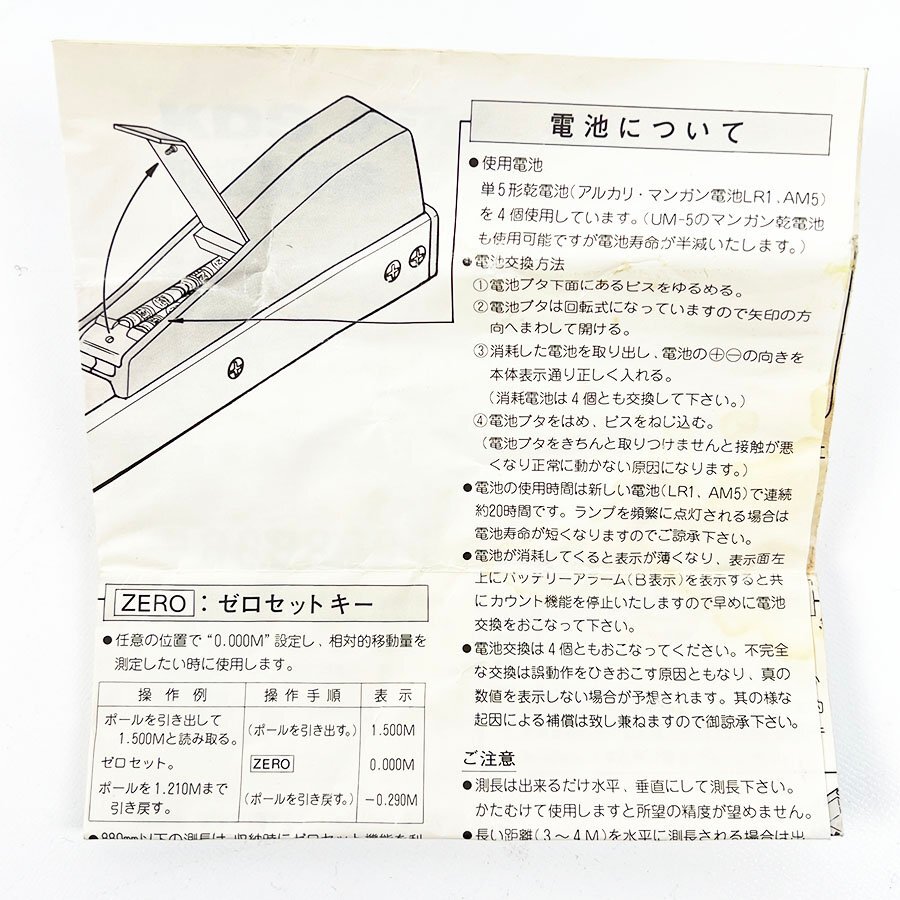 電池について
●使用電池
単5形乾電池(アルカリ・マンガン電池LR1、AM5)
を4個使用しています。(UM-5のマンガン乾電池
も使用可能ですが電池寿命が半減いたします。)
●電池交換方法
①電池ブタ下面にあるビスをゆるめる。
②電池ブタは回転式になっていますので矢印の方
向へまわして開ける。
③消耗した電池を取り出し、電池の⊕⊖の向きを
本体表示通り正しく入れる。
(消耗電池は4個とも交換して下さい。)
④電池ブタをはめ、ビスをねじ込む。
(電池ブタをきちんと取りつけませんと接触が悪
くなり正常に動かない原因になります。)
●電池の使用時間は新しい電池(LR1、AM5)で連続
約20時間です。ランプを頻繁に点灯される場合は
電池寿命が短くなりますのでご諒承下さい。
●電池が消耗してくると表示が薄くなり、表示面左
上にバッテリーアラーム(B表示)を表示すると共
にカウント機能を停止いたしますので早めに電池
交換をおこなって下さい。
●電池交換は4個ともおこなってください。不完全
な交換は誤動作をひきおこす原因ともなり、真の
数値を表示しない場合が予想されます。其の様な
起因による補償は致し兼ねますので御諒承下さい。
ご注意
●測長は出来るだけ水平、垂直にして測長下さい。
かたむけて使用しますと所望の精度が望めません。
●長い距離(3〜4M)を水平に測長される場合は出
ZERO：ゼロセットキー
●任意の位置で“0.000M”設定し、相対的移動量を
測定したい時に使用します。
操作例 操作手順 表示
ポールを引き出して
1.500Mと読み取る。 (ポールを引き出す。) 1.500M
ゼロセット。 ZERO 0.000M
ポールを1.210Mまで
引き戻す。 (ポールを引き戻す。) −0.290M
●980mm以下の測長は、収納時にゼロセット機能を利